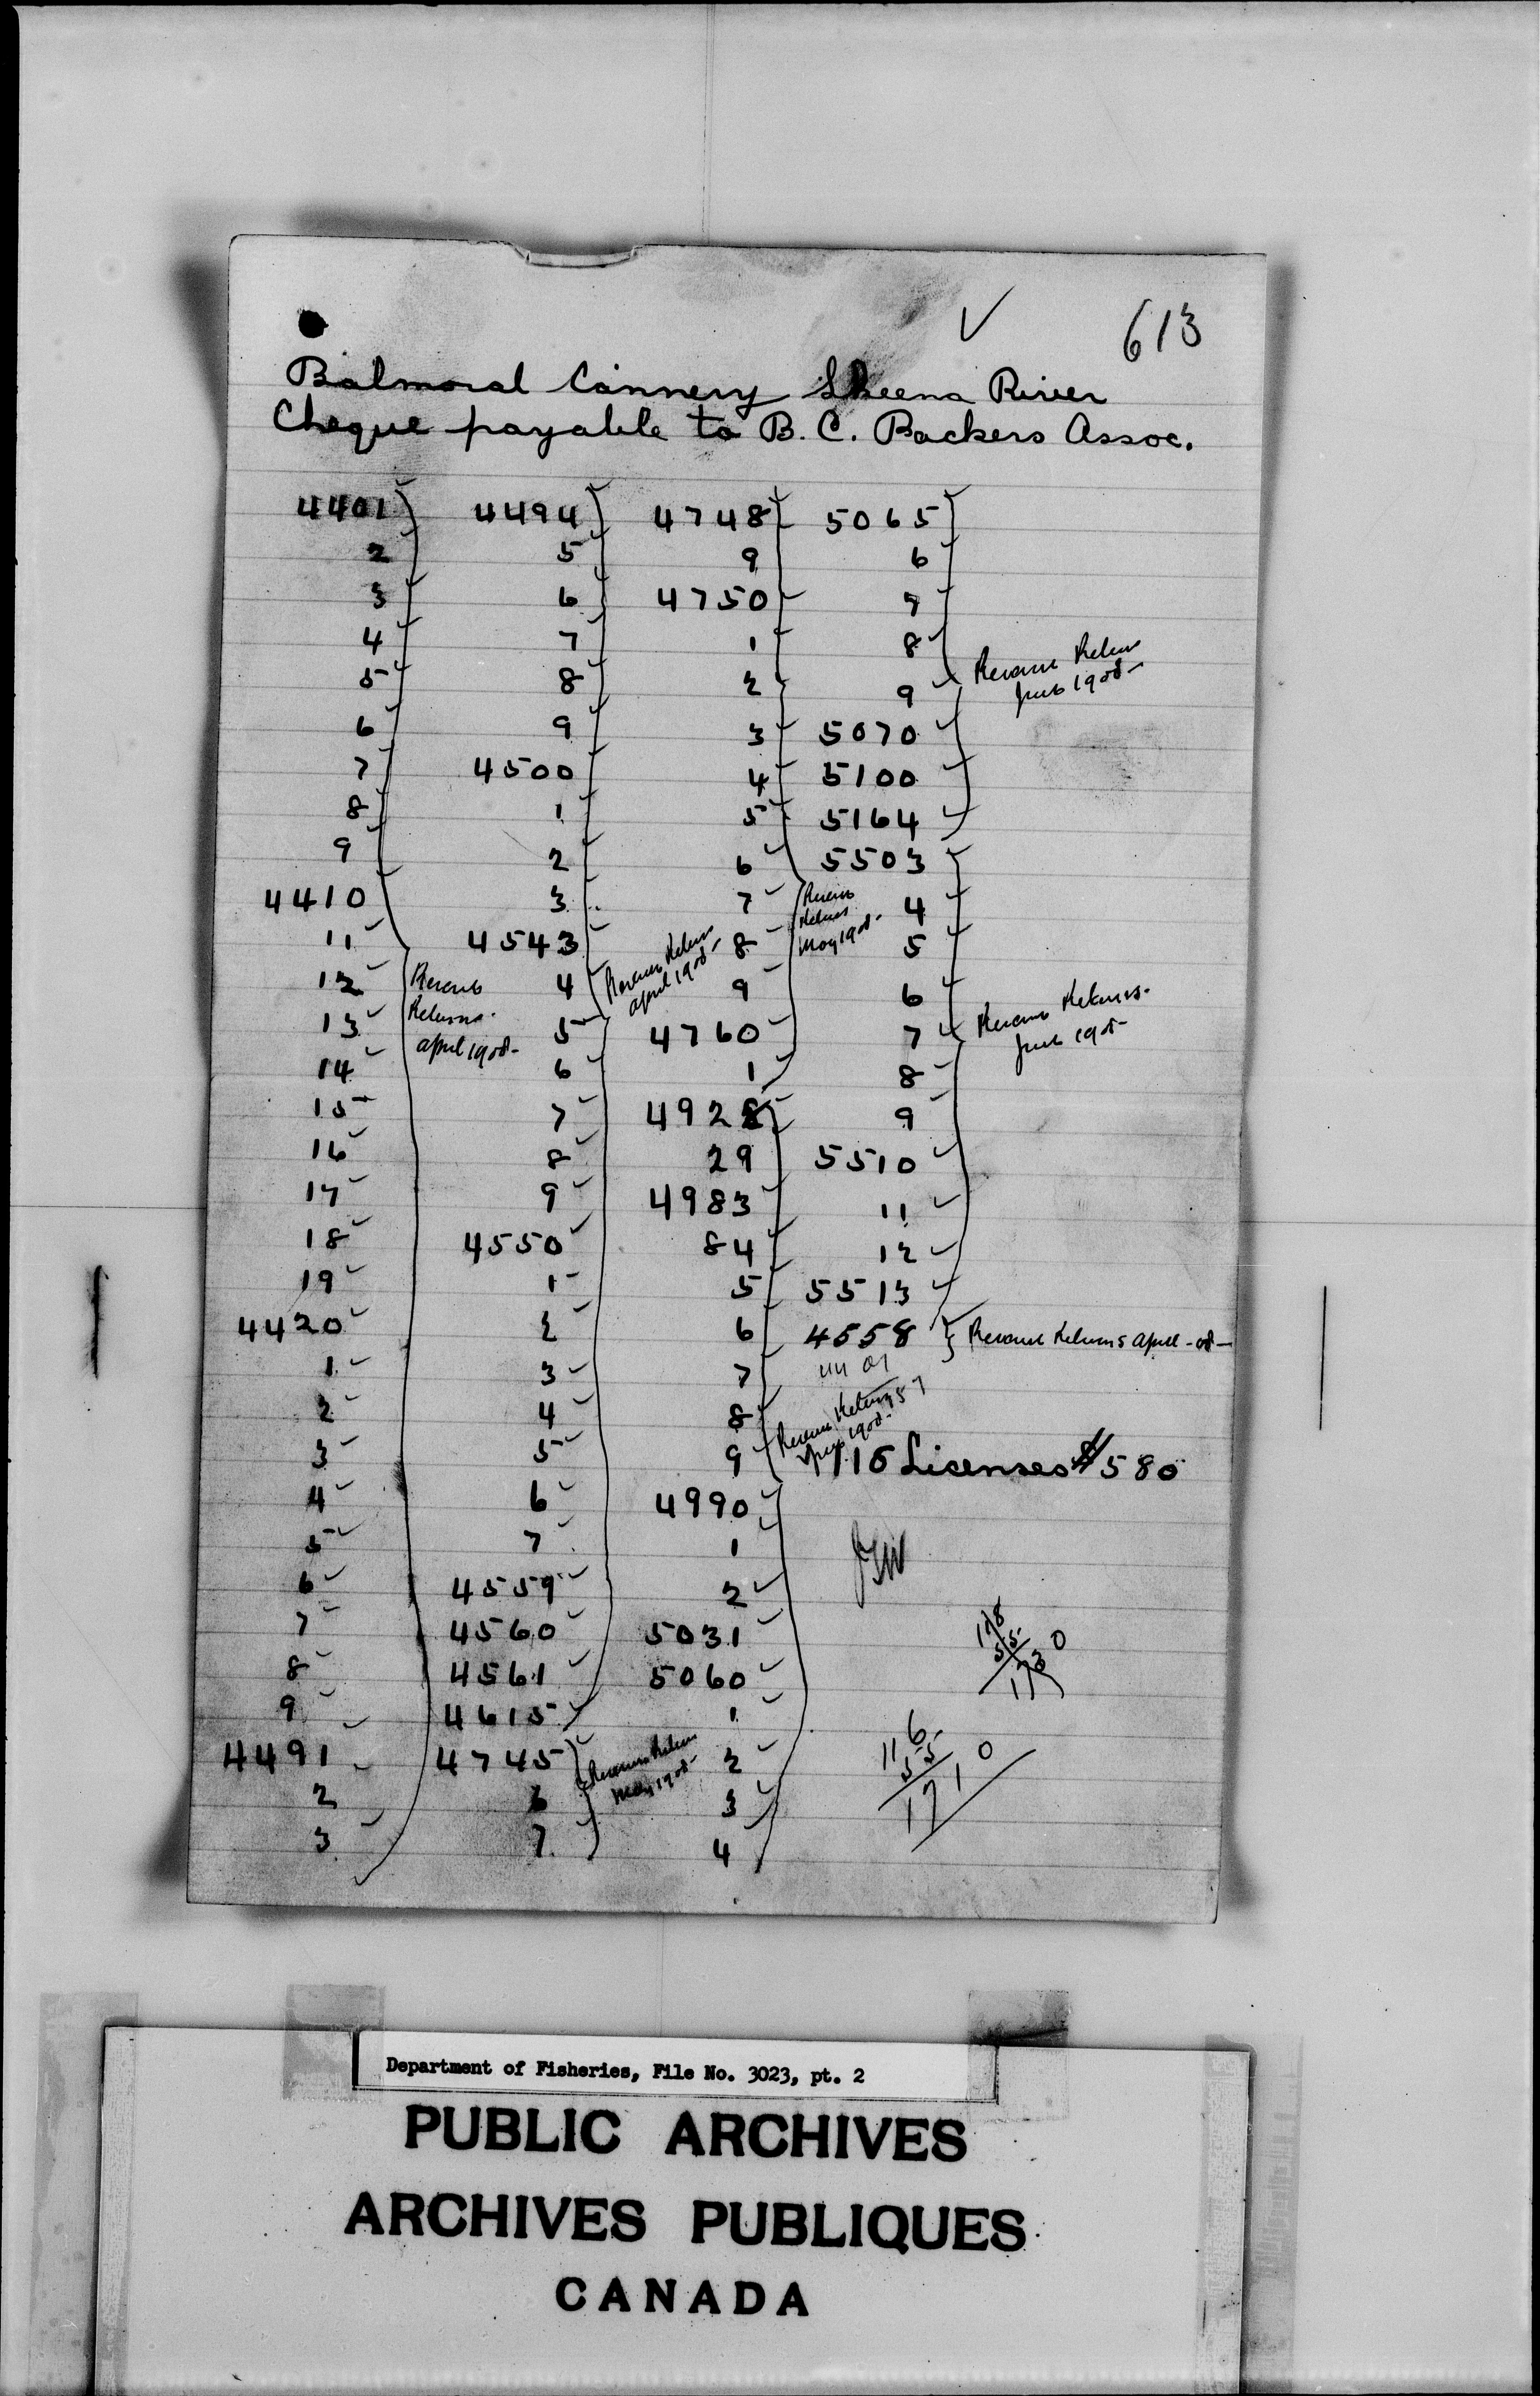 613
Balmoral Cannery Skeena River
Cheque payable to B. C. Packers Assoc.
4401 4494 4748 5065
2 5 9 6
3 6 4750 7
4 7 1 8
5 8 2 9
Revenue Return
June 1908-
6 9 3 5070
7 4500 4 5100
8 1 5 5164
9 2 6 5503
4410 3 7 4
Revenue
Returns
May 1908-
11 4543 8 5
Revenue Return
April 1908-
12 4 9 6
13 5 4760 7
Revenue
Returns.
April 1908-
Revenue Returns.
June 1908-
14 6 1 8
15 7 4928 9
16 8 29 5510
17 9 4983 11
18 4550 84 12
19 1 5 5513
4420 2 6 4558 Revenue Returns April -08-
1 3 7
2 4 8
Revenue Returns
1908-
57
3 5 9 116 Licenses $580
4 6 4990
5 7 1
6 4559 2
7 4560 5031
8 4561 5060
9 4615 1
4491 4745 2
Revenue Return
May 1908-
2 6 3
3 7 4
116
5
Department of Fisheries, File No. 3023, pt. 2
PUBLIC ARCHIVES
ARCHIVES PUBLIQUES
CANADA